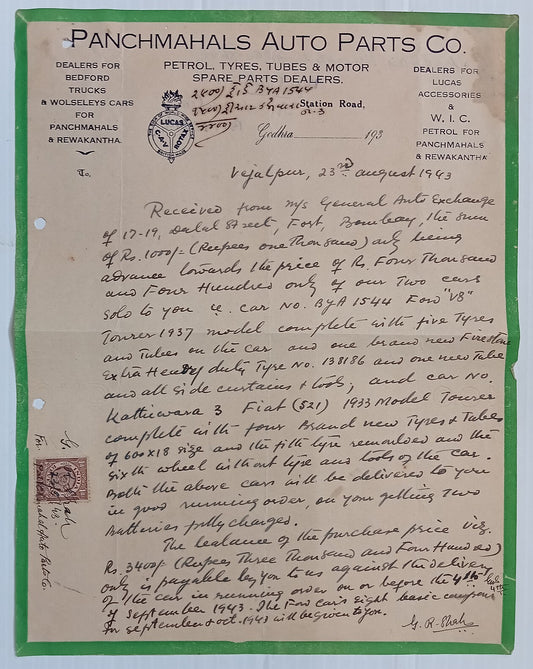 PANCHMAHALS AUTO PARTS CO.
DEALERS FOR
BEDFORD
TRUCKS
& WOLSELEYS CARS
FOR
PANCHMAHALS
& REWAKANTHA.
PETROL, TYRES, TUBES & MOTOR
SPARE PARTS DEALERS.
DEALERS FOR
LUCAS
ACCESSORIES
&
W. I. C.
PETROL FOR
PANCHMAHALS
& REWAKANTHA
BYA 1544
LUCAS
CAV
ROTAX
Station Road,
Godhra 193
To.
Vejalpur, 23rd August 1943
Received from M/s General Auto Exchange
of 17-19, Dalal Street, Fort, Bombay, the sum
of Rs. 1000/- (Rupees one Thousand) only being
advance towards the price of Rs. Four Thousand
and Four Hundred only of our Two cars
sold to you ie. car No. BYA 1544 Ford "V8"
Tourer 1937 model complete with five Tyres
and Tubes on the car and one brand new Firestone
Extra Heavy duty Tyre No. 138186 and one new Tube
and all side curtains & tools, and car No.
Kathiwara 3 Fiat (521) 1933 Model Tourer
complete with four Brand new Tyres & Tubes
of 600x18 size and the fifth tyre remoulded and the
sixth wheel without tyre and tools of the car.
Both the above cars will be delivered to you
in good running order, on your getting two
Batteries fully charged.
The balance of the purchase price viz.
Rs. 3400/- (Rupees Three Thousand and Four Hundred)
only is payable by you to us against the delivery
of the car in running order on or before the 4th
of September 1943. The Ford car's eight basic coupons
for September & Oct. 1943 will be given to you.
G. R. Shah
G. R. Shah
For Panchmahal Auto Parts Co.